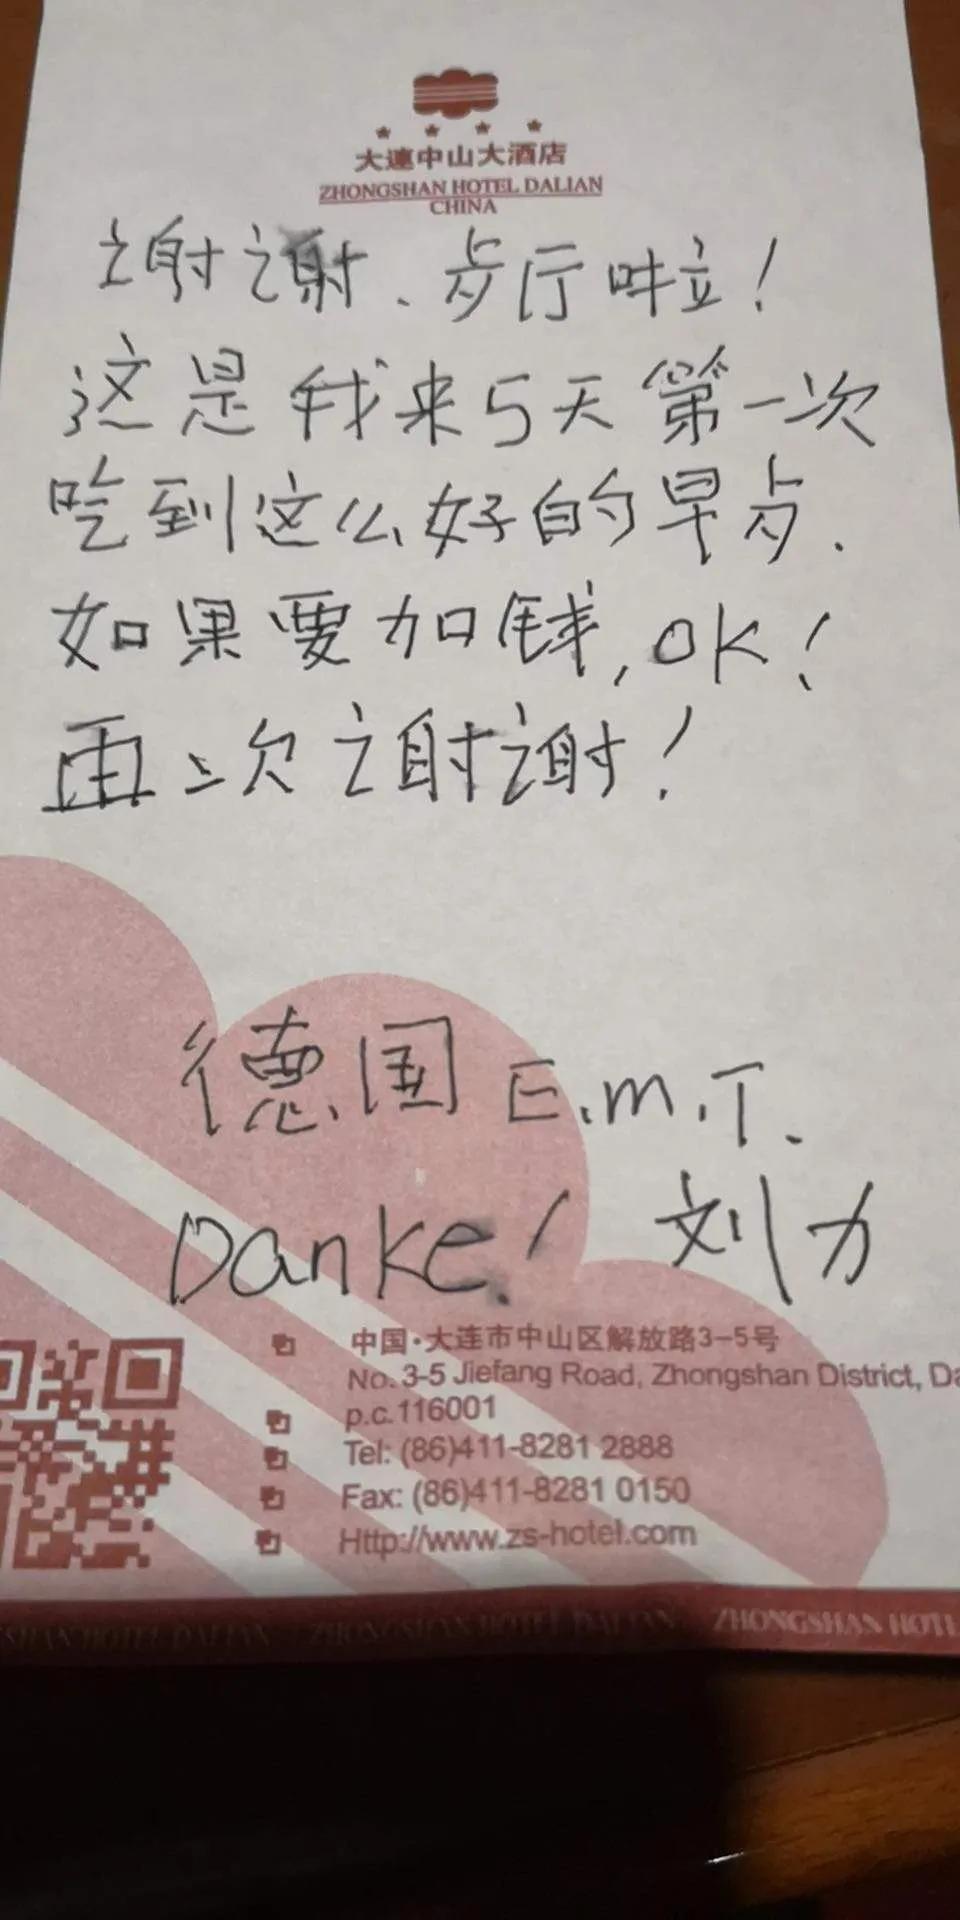 大連中山大酒店
ZHONGSHAN HOTEL DALIAN
CHINA
谢谢、
这是我来5天第一次
吃到这么好的早点.
如果要加钱,OK!
再次谢谢!
德国 E.m.T.
Danke! 刘力
中国·大连市中山区解放路3-5号
No. 3-5 Jiefang Road, Zhongshan District, Da
p.c.116001
Tel: (86)411-8281 2888
Fax: (86)411-8281 0150
Http://www.zs-hotel.com
SHAN HOTEL DALIAN ZHONGSHAN HOTEL DALIAN ZHONGSHAN HOTE